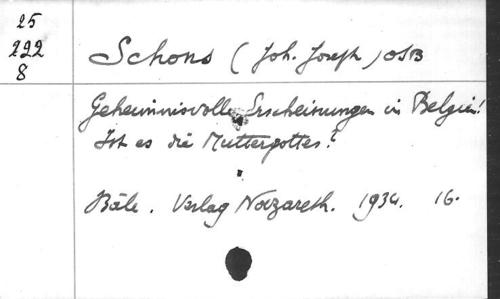 25
222
8
Schons (Joh. Joseph) OSB
Geheimnisvolle Erscheinungen in Belgien!
Ist es die Muttergottes?
Bâle. Verlag Nazareth. 1934. 16.